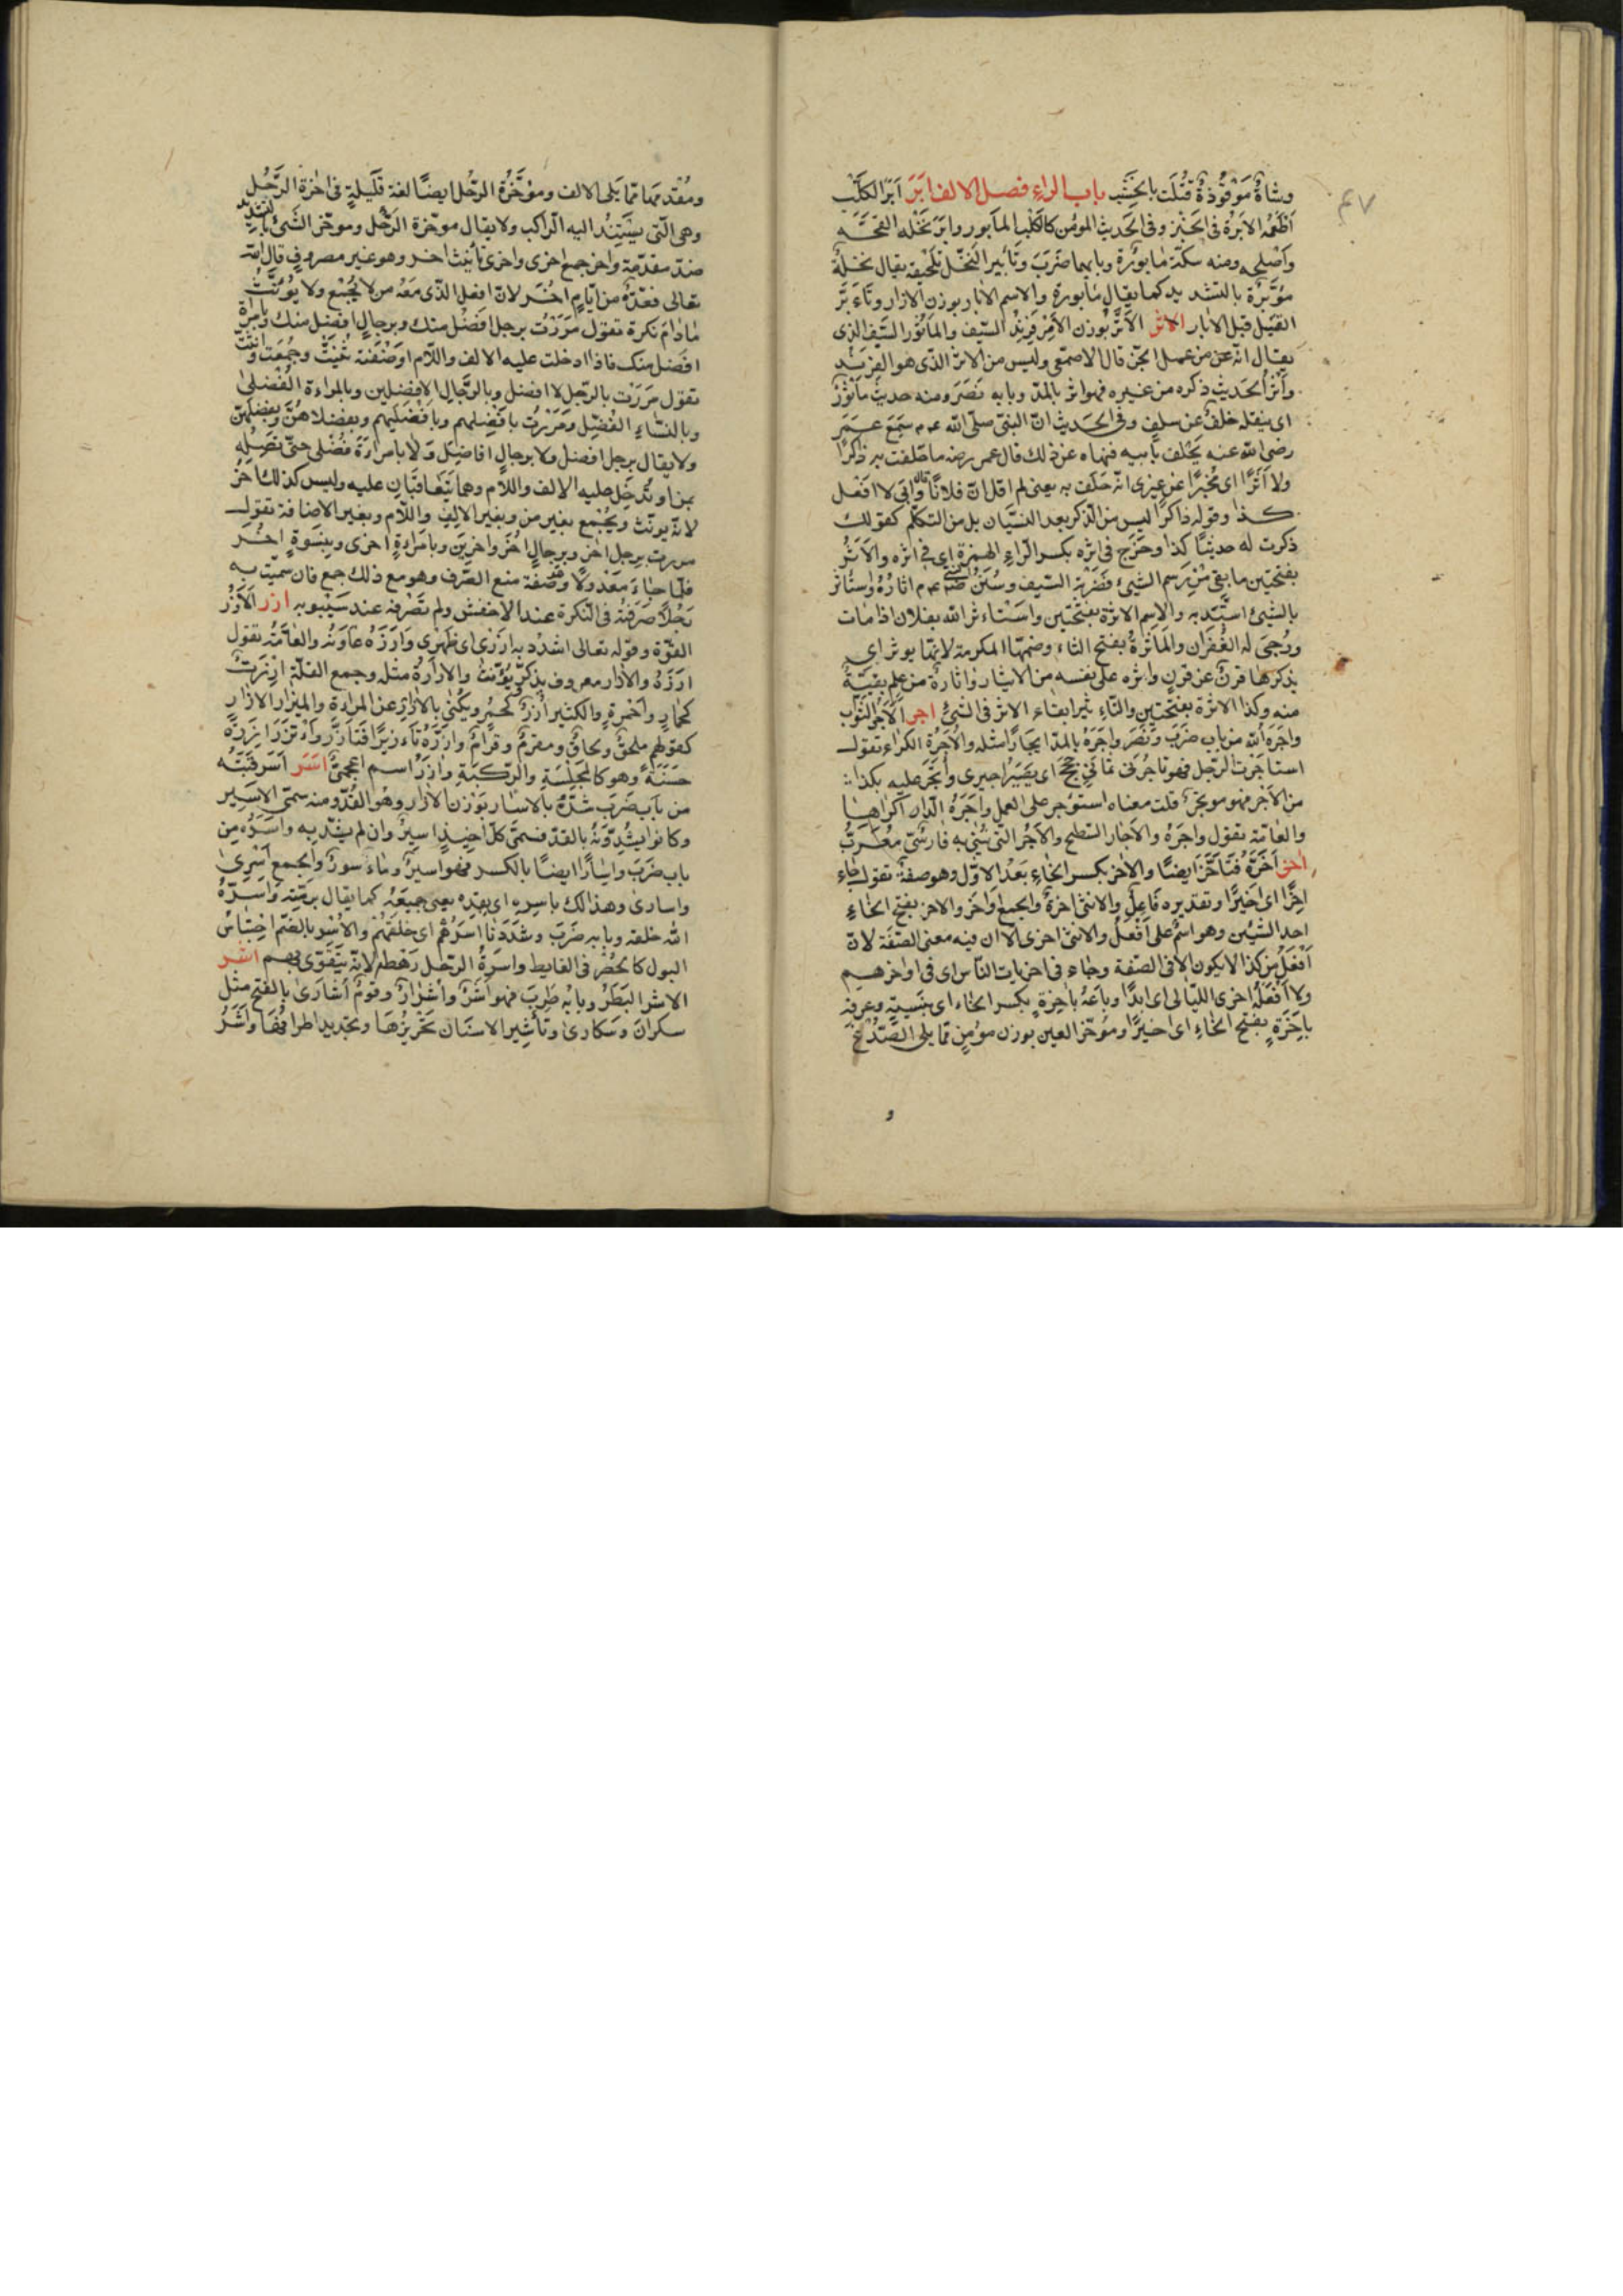 ٤٧
وشاةٌ مَوْقُوذةٌ قُتلَت بالخشب باب الراء فصل الالف ابَرَ اَبَر الكَلْب
اَطْعَمَه الابَرة في الخبز وفي الحديث المؤمن كالكلب المأبور وابَرَ نخْلَه لقحَه
وأصْلحه ومنه سكّة مابورَة وبابهما ضَرَبَ وتأبير النخل تلقيحه يقال نخلةٌ
مؤبّرة بالتشديد كما يقال مأبورة والاسم الابار بوزن الازار وتاءبّر
الفسيل قبل الابار الاثر الأثر بوزن الأمر فرند السيف والمأثور السيف الذى
يقال انه عن من عمل الجنّ قال الاصمعى وليس من الاثر الذى هو الفرند
وأثر الحديث ذكره من غيره فهو اثر بالمدّ وبابه نَصَر ومنه حديث مأثورٌ
اى ينقله خلفٌ عن سلفٍ وفي الحديث انّ النبى صلّى الله عم سَمِعَ عُمَرَ
رضى الله عنه يحلف بأبيه فنهاه عن ذلك قال عمر رضه ما حلفت به ذاكرًا
ولا اثرًا اى مخبرًا عن غيرى انه حَلَف به يعنى لم اقل انّ فلانًا قال وابى لا افعل
كذا وقوله ذاكرًا ليس من الذكر بعد النسيان بل من التكلّم كقولك
ذكرت له حديثًا كذا وخرج فى اثره بكسر الهمزة اى فى اثره والاَثرُ
بفتحتين ما بقى من رسم الشيئ وضَربة السيف وسُنَنُ النبى عم اثارُهُ واستأثر
بالشيئ استبَدّ به والاسم الاثرة بفتحتين واسْتاءثر الله بفلان اذا مات
ورُجِىَ له الغُفران والمأثرةُ بفتح الثاء وضمّها المكرمة لانّها يوثر اى
يذكرها قرنٌ عن قرنٍ واثره على نفسه من الايثار واثارةٌ من علم بقيّةٌ
منه وكذا الاثرة بفتحتين والتّاءثير ابقاء الاثر فى الشيئ اجر الاَجْرُ الثواب
واجَرَهُ الله من باب ضَرَبَ ونَصَرَ واجَرَهُ بالمدّ ايجارًا مثله والاُجرَة الكراء تقول
استاجَرْت الرّجل فهو ياجُرنى ثمانى حِجَجٍ اى يَصِيرُ اجيرى وأتجَرَ عليه بكذا
من الاَجْر فهو موتجرٌ قلت معناه استوجر على العمل واجَرَهُ الدار اكراها
والعامّة تقول واجَرَهُ والاجّار السطح والآجُرّ الذى يُبنى به فارسىٌّ معرّبٌ
اخر اَخّرَهُ فتأخّر ايضًا والاخر بكسر الخاء بَعْدُ الاوّل وهو صفةٌ تقول جاء
اخرًا اى اخيرًا وتقديره فَاعِلٌ والانثى اخرةٌ والجمع اواخر والاخر بفتح الخاء
احد الشيئين وهو اسم على اَفْعَلُ والانثى اخرى الا ان فيه معنى الصفة لانّ
اَفْعَلَ من كذا لا يكون الا فى الصّفة وجاء فى اخريات النّاس اى فى اواخرهم
ولا أفعله اخرى الليالى اى ابدًا وباعَهُ باَخِرةٍ بكسر الخاء اى بنسيةٍ وعرفه
باَخَرَةٍ بفتح الخاء اى اخيرًا ومؤخر العين بوزن مؤمِنٍ ممّا يلى الصّدْغ
و
ومُقْدِمها ممّا يَلى الانف ومؤخّرَةُ الرحل ايضًا لغة قليلةٍ فى اخرة الرَّحل
وهى الّتى يستندُ اليه الراكب ولا يقال موخّرة الرَّحل وموخّر الشَئ بالتشديد
ضدّ مقدّمة واُخر جمع اخرى واخرى تأنيث اخر وهو غير مصروفٍ قال الله
تعالى فعدّةٌ من ايامٍ اُخَر لانّ افعل الذى مَعهُ من لا يُجْمع ولا يُوَنّثُ
مادامَ نكرة تقول مَرَرْت برجل افضل منك وبرجالٍ افضل منك وبامراة
افضل منك فاذا ادخلت عليه الالف واللام او ضفته ثنيتَ وجمعت وانثت
تقول مَرَرْت بالرّجل لا افضل وبالرّجالِ الافضلين وبالمراءة الفُضلى
وبالنساءِ الفُضَل ومَرَرْت بافضلهم وبافضَليهم وبفضلاهُنّ وبفضَلهنّ
ولا يقال برجل افضل ولا برجالٍ افاضِل ولا بامراءة فُضْلى حتى تصِلهِ
بمن او تُدخِل عليه الالف واللام وهما يَتَعاقبَانِ عليه وليس كذلك اخر
لانّه يونّث ويُجْمع بغير من وبغير الالف واللّام وبغير الاضافة تقول
مررت برجل اخر وبرجالٍ اُخَر واخرين وبامراءةٍ اخرى وبنِسوةٍ اُخَر
فلمّا جاءَ مَعْدولًا وهو صفة منع الصّرف وهو مع ذلك جمع فان سمّيت به
رَجُلًا صَرَفتهُ فى النكرة عند الاخفش ولم تَصْرفه عند سَيبويه ازر الاَزْرُ
القوّة وقوله تعالى اشدُدْ به ازرى اى ظهرى وَازَرَهُ عاوَنَهُ والعامّة تقول
وازَرَهُ والازار معروف يذكّر ويُونّث والازارَةُ مثله وجمع القلّة ازرةٌ
كحمارٍ واَحْمِرةٍ والكثير اُزرٌ كحُمُرٍ ويكنّى بالازارِ عن المراءة والمئزر الازار
كقولهم ملحفٌ ولحافٌ ومقرمٌ وقرامٌ وازّرَهُ تاءزيرًا فتأزّر وَاْتَزرَ ازرةً
حَسَنةً وهو كالجِلْسَةِ والرِّكبَةِ وازَرُ اسم اعجمىٌّ اسر اَسَر قَتبَه
من باب ضَرَب شدّهُ بالاسار بوَزن الازار وهو القِدّ ومنه سمّى الاسير
وكانوا يشُدّونَهُ بالقدّ فسمّى كلّ اخيذٍ اسيرًا وان لم يشدّ به واَسَرَهُ من
باب ضَرَبَ واسارًا ايضًا بالكسر فهو اسيرٌ وماءسورٌ والجمع اَسْرى
واسارى وهذا لك باسره اى بقدِّه يعنى جميعَهُ كما يقال برمّته وَاسَرَهُ
الله خلقه وبابه ضَرَبَ وشَدَدْنا اَسْرَهُم اى خلقهم والاُسْر بالضمّ احتباسُ
البول كالحُصْر فى الغايط واسرَةُ الرّجل رَهطه لانّه يَتقَوّى بهم اشر
الاشر البَطَرُ وبابُه طَرِبَ فهو اَشِرٌ واَشرانُ وقومٌ اَشارَى بالفتح مثل
سكران وسَكارى وتأشير الاسنان تحزيزُهَا وتحديد اطرافهَا واَشَرُ